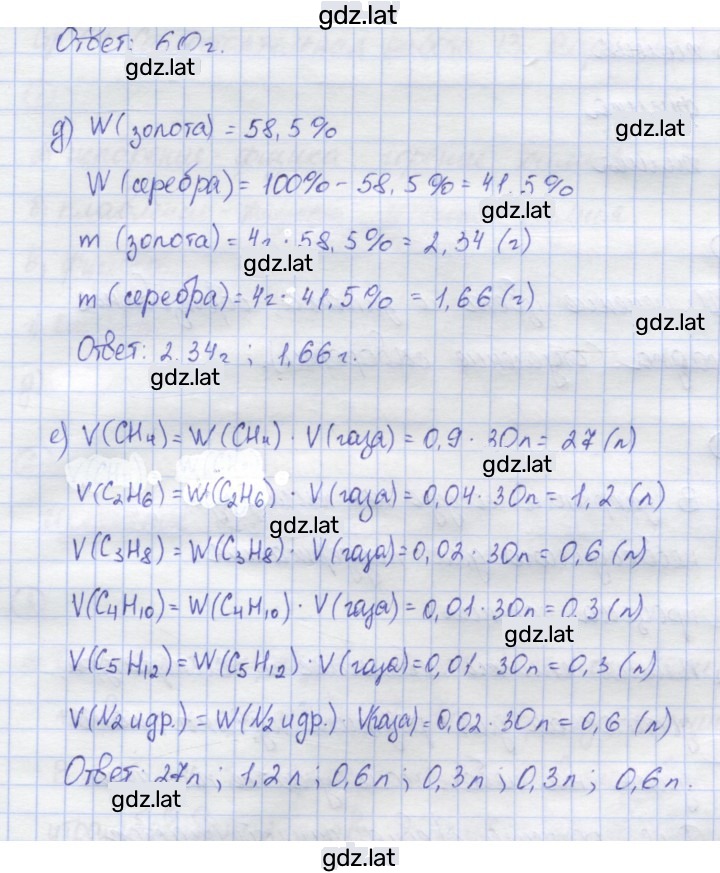 gdz.lat
Ответ: 60 г.
gdz.lat
д) W (золота) = 58,5%
gdz.lat
W (серебра) = 100% - 58,5% = 41,5%
gdz.lat
m (золота) = 4г · 58,5% = 2,34 (г)
gdz.lat
m (серебра) = 4г · 41,5% = 1,66 (г)
gdz.lat
Ответ: 2.34г ; 1,66 г.
gdz.lat
е) V(CH₄) = W(CH₄) · V(газа) = 0,9 · 30л = 27 (л)
gdz.lat
V(C₂H₆) = W(C₂H₆) · V(газа) = 0,04 · 30л = 1,2 (л)
gdz.lat
V(C₃H₈) = W(C₃H₈) · V(газа) = 0,02 · 30л = 0,6 (л)
V(C₄H₁₀) = W(C₄H₁₀) · V(газа) = 0,01 · 30л = 0,3 (л)
gdz.lat
V(C₅H₁₂) = W(C₅H₁₂) · V(газа) = 0,01 · 30л = 0,3 (л)
V(N₂ и др.) = W(N₂ и др.) · V(газа) = 0,02 · 30л = 0,6 (л)
Ответ: 27л ; 1,2л ; 0,6л ; 0,3л ; 0,3л ; 0,6л.
gdz.lat
gdz.lat